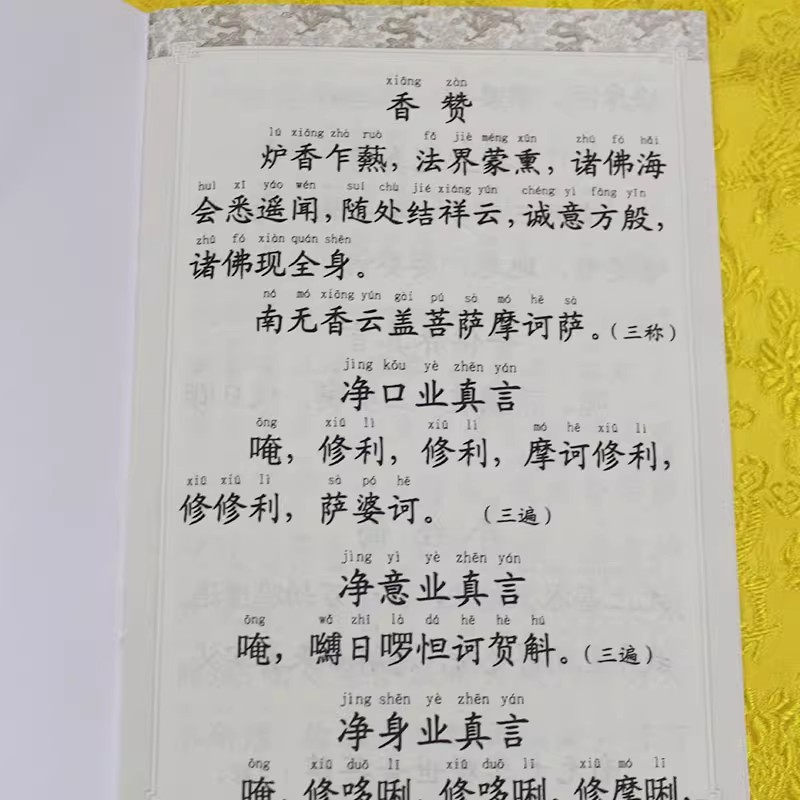 xiāng zàn
香赞
lú xiāng zhà ruò fǎ jiè méng xūn zhū fó hǎi
炉香乍爇，法界蒙熏，诸佛海
huì xī yáo wén suí chù jié xiáng yún chéng yì fāng yīn
会悉遥闻，随处结祥云，诚意方殷，
zhū fó xiàn quán shēn
诸佛现全身。
ná mó xiāng yún gài pú sà mó hē sà
南无香云盖菩萨摩诃萨。（三称）
jìng kǒu yè zhēn yán
净口业真言
ōng xiū lì xiū lì mó hē xiū lì
唵，修利，修利，摩诃修利，
xiū xiū lì sà pó hē
修修利，萨婆诃。（三遍）
jìng yì yè zhēn yán
净意业真言
ōng wǎ zhī là dá hē hè hú
唵，嚩日啰怛诃贺斛。（三遍）
jìng shēn yè zhēn yán
净身业真言
ōng xiū duō lī xiū duō lī xiū mó lī
唵，修哆唎，修哆唎，修摩唎，